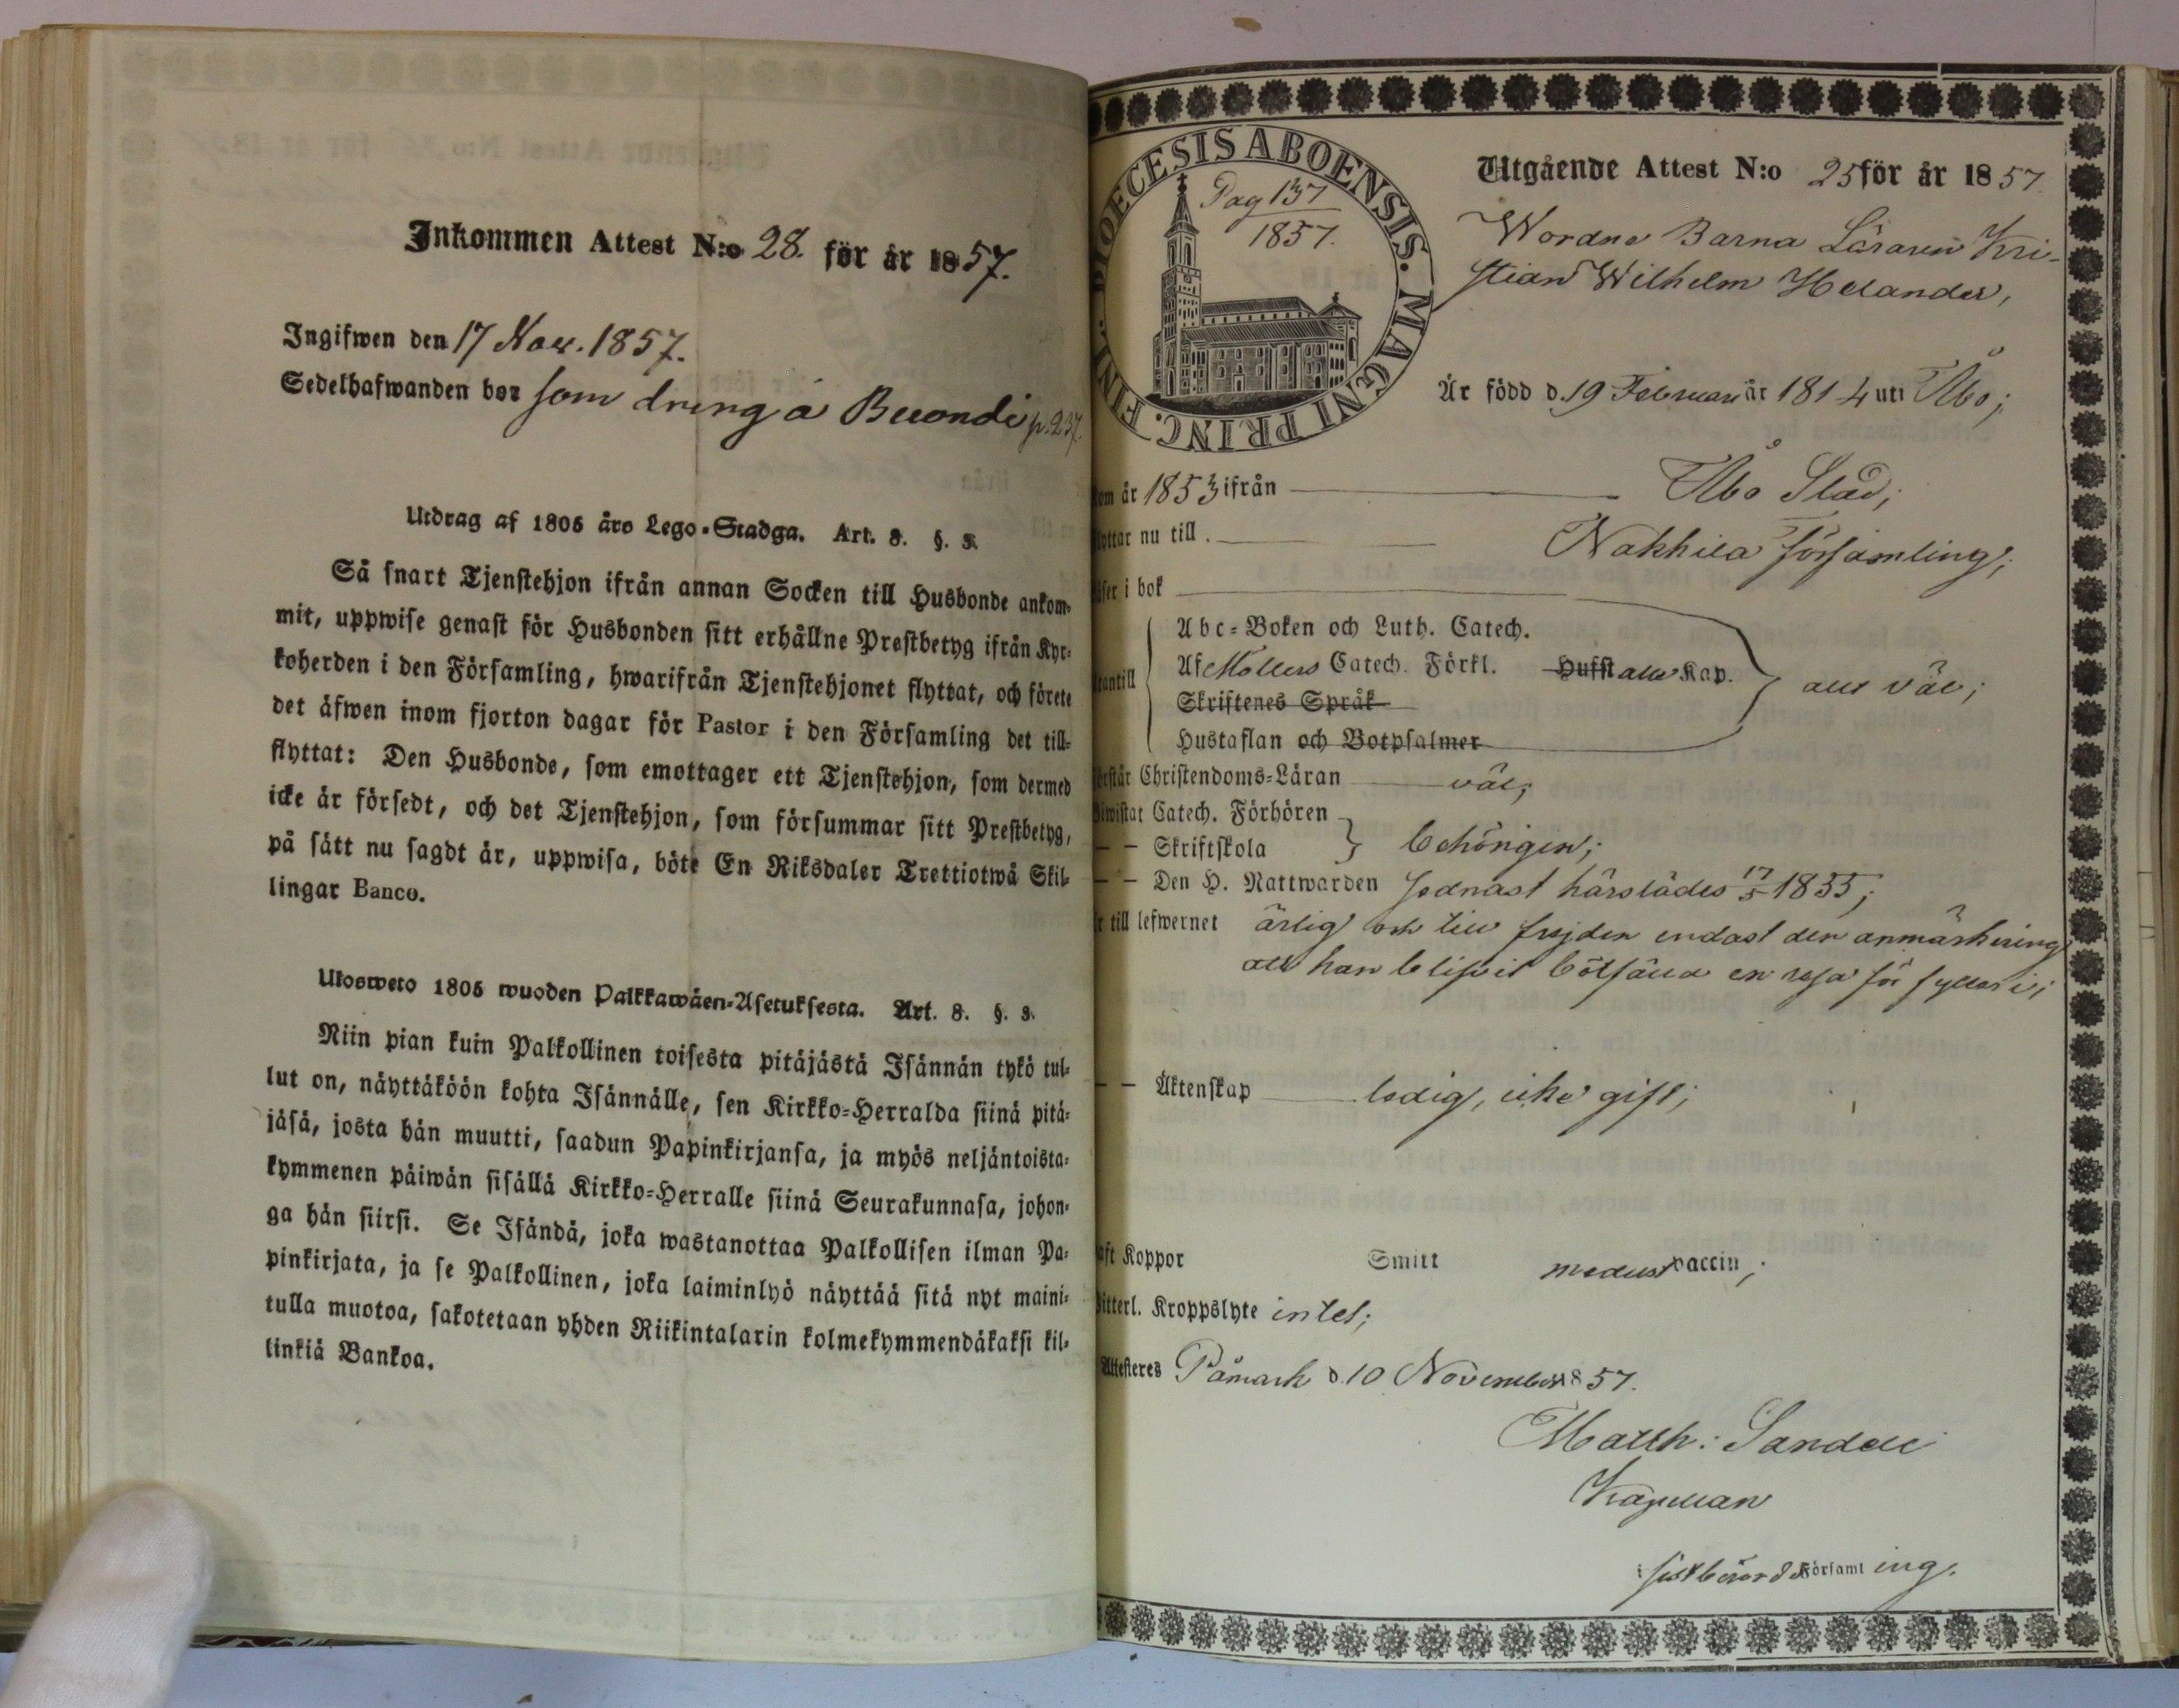 Inkommen Attest N:o 28. för år 1857.
Ingifwen den 17 Nov. 1857.
Sedelhafwanden bor som dreng å p. 237.
Utdrag af 1805 års Lego-Stadga. Art. 8. §. 3.
Så snart Tjenstehjon ifrån annan Socken till Husbonde ankom-
mit, uppwise genast för Husbonden sitt erhållne Prestbetyg ifrån Kyr-
koherden i den Församling, hwarifrån Tjenstehjonet flyttat, och förete
det äfwen inom fjorton dagar för Pastor i den Församling det till-
flyttat: Den Husbonde, som emottager ett Tjenstehjon, som dermed
icke är försedt, och det Tjenstehjon, som försummar sitt Prestbetyg,
på sätt nu sagdt är, uppwisa, böte En Riksdaler Trettiotwå Skil-
lingar Banco.
Ulosweto 1805 wuoden Palkkawäen-Asetuksesta. Art. 8. §. 3.
Niin pian kuin Palkollinen toisesta pitäjästä Isännän tykö tul-
lut on, näyttäköön kohta Isännälle, sen Kirkko-Herralda siinä pitä-
jäsä, josta hän muutti, saadun Papinkirjansa, ja myös neljäntoista-
kymmenen päiwän sisällä Kirkko-Herralle siinä Seurakunnasa, johon-
ga hän siirsi. Se Isändä, joka wastanottaa Palkollisen ilman Pa-
pinkirjata, ja se Palkollinen, joka laiminlyö näyttää sitä nyt maini-
tulla muotoa, sakotetaan yhden Riikintalarin kolmekymmendäkaksi kil-
linkiä Bankoa.
DIOECESIS ABOENSIS. MAGNI PRINC. FINL.
Pag 137
1857.
Utgående Attest N:o 25 för år 1857.
Wordne Barna Läraren Kri-
stian Wilhelm Helander,
Är född d. 19 Februari år 1814 uti Åbo;
kom år 1853 ifrån Åbo Stad;
flyttar nu till Nakkila församling;
läser i bok
Abc-Boken och Luth. Catech.
utantill Af Möllers Catech. Förkl. Husst alla Kap. allt väl;
Skriftenes Språk
Hustaflan och Botpsalmer
förstår Christendoms-Läran väl;
Biwistat Catech. Förhören
— — Skriftskola behörigen;
— — Den H. Nattwarden sednast härstädes 17/5 1855;
är till lefwernet ärlig och till frejden endast den anmärkning
att han blifvit bötfälld en resa för fylleri;
— — Äktenskap ledig, icke gift;
haft Koppor Smitt medelst vaccin;
Bitterl. Kroppslyte intet;
Attesteres Påmark d. 10 November 1857.
Matth: Sandell
Kapellan
sistberörde Församling.